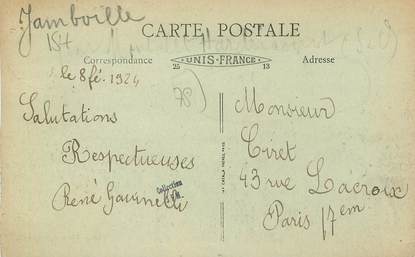 Jambville
CARTE POSTALE
Correspondance
UNIS-FRANCE
25
13
Adresse
le 8 fé. 1924
78)
Salutations
Respectueuses
René
Collection
Monsieur
Ciret
43 rue Lacroix
Paris 17em